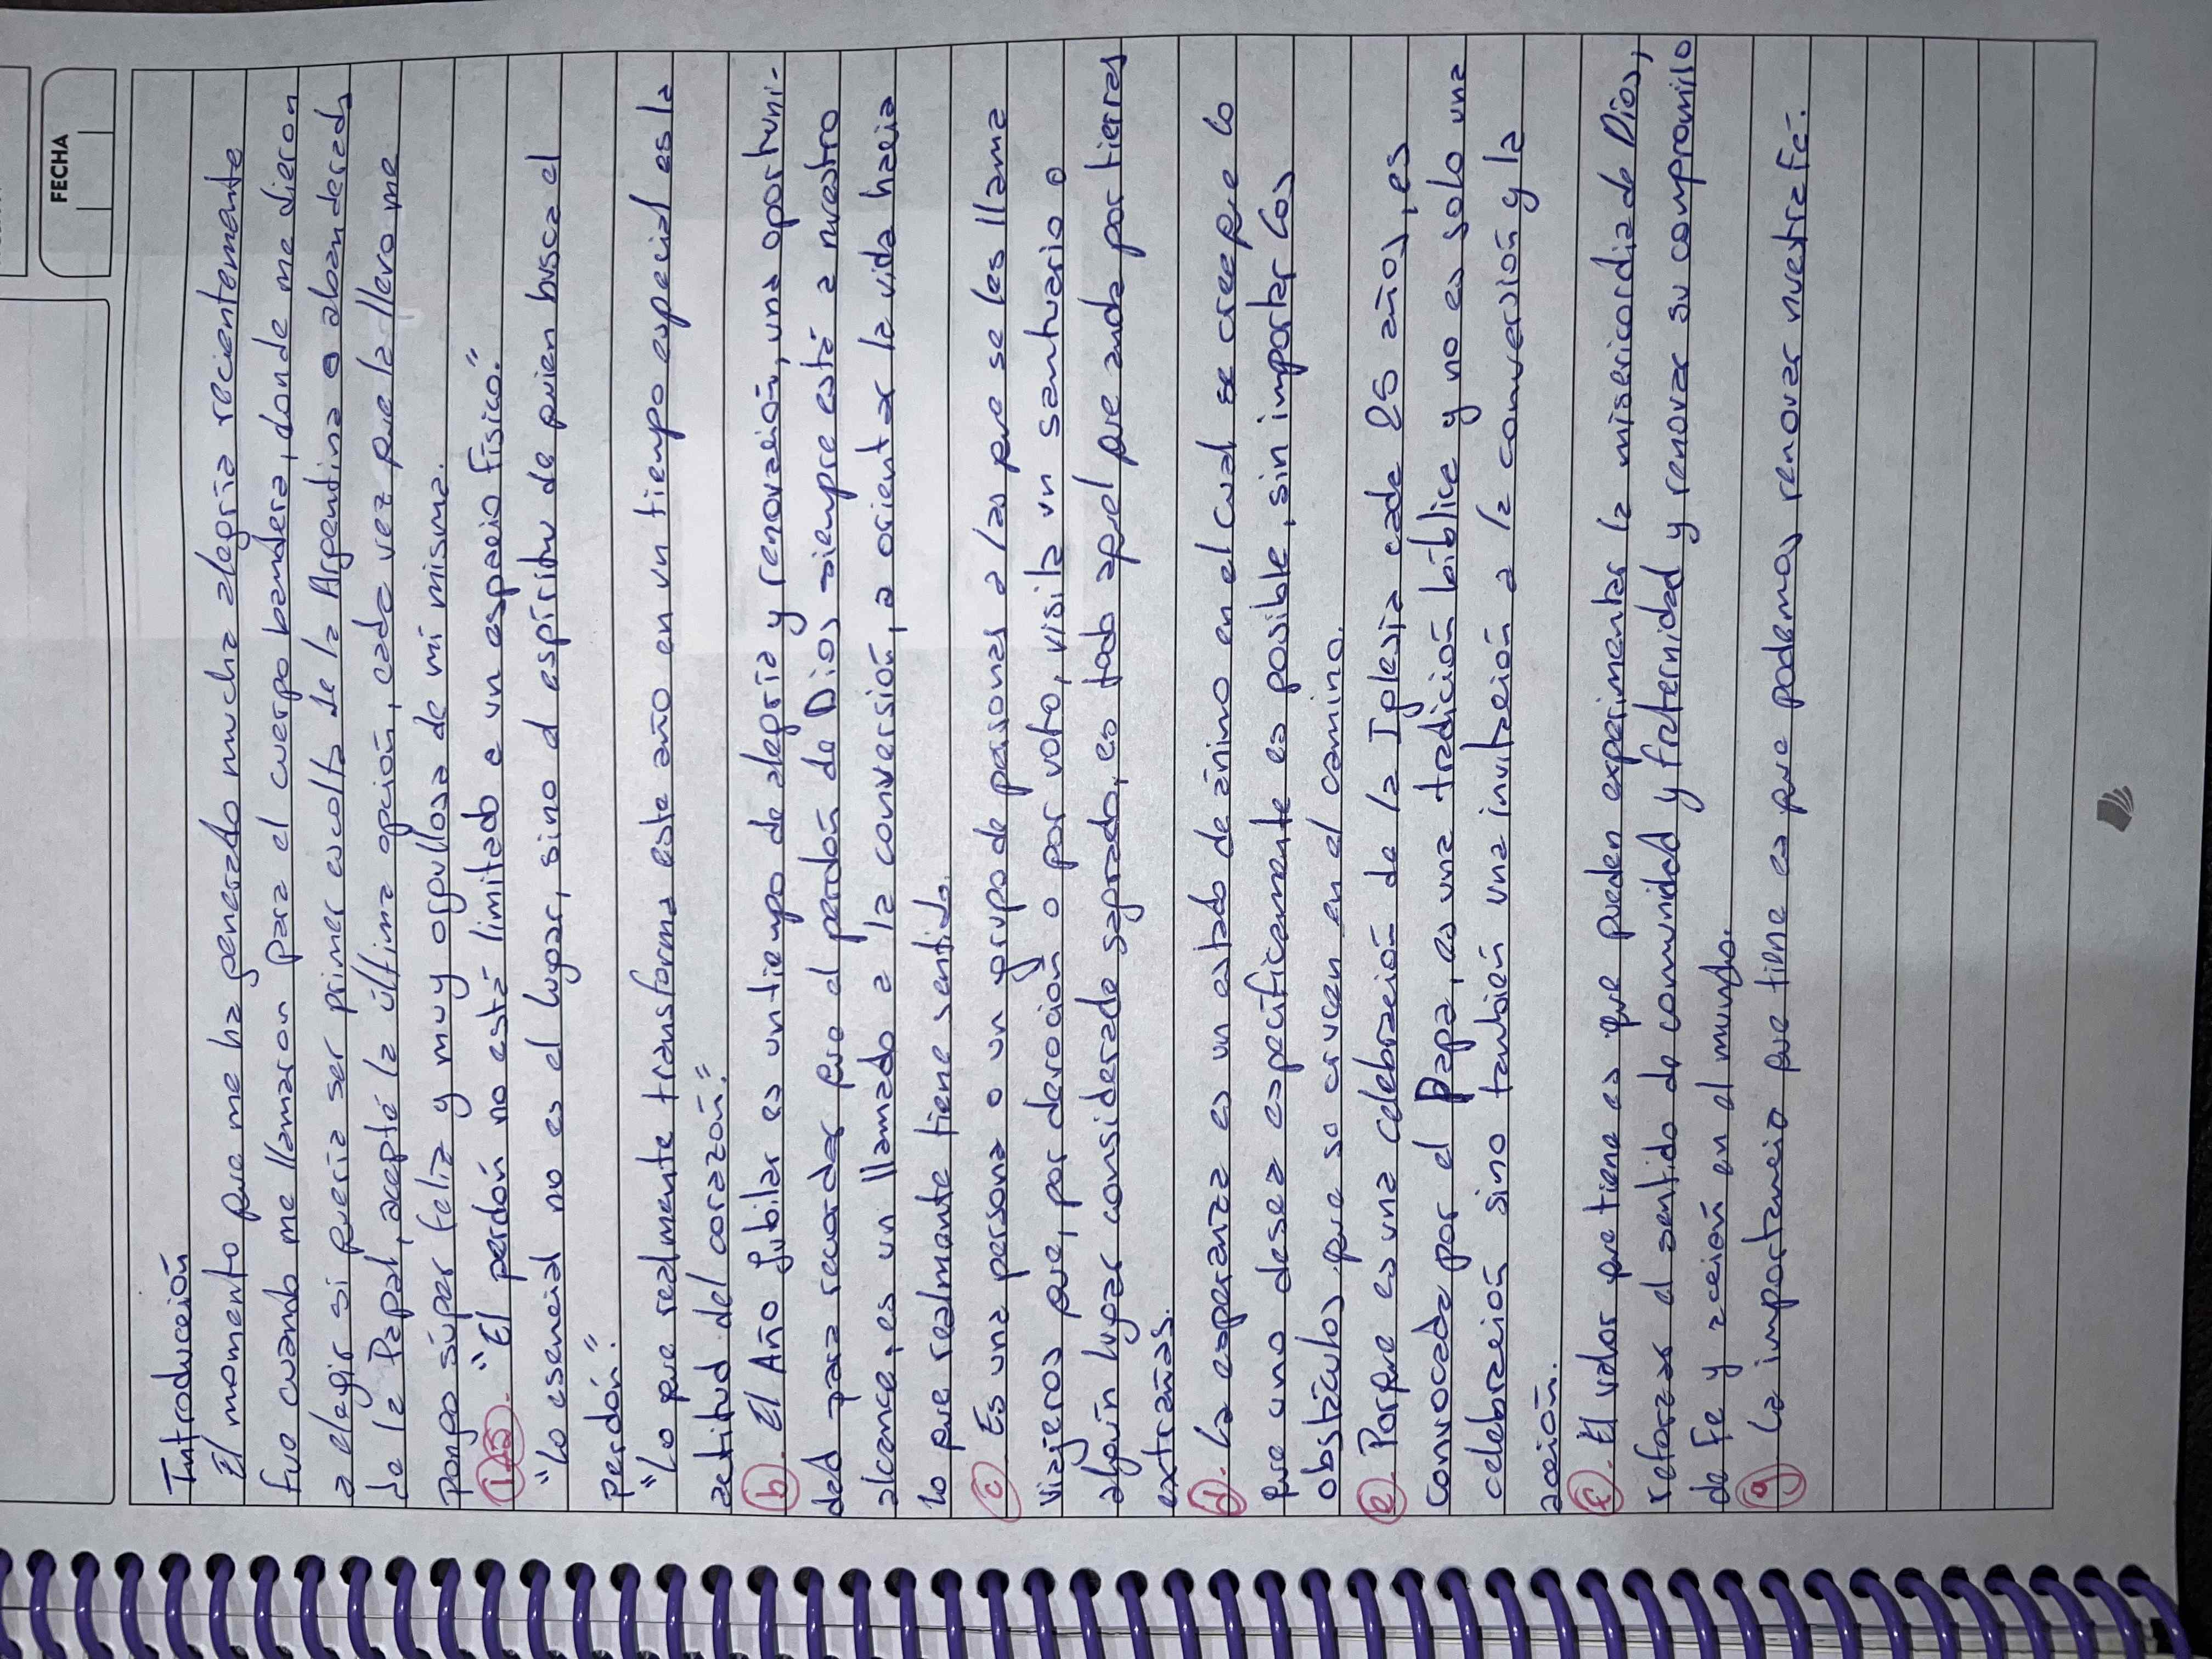 FECHA
Introducción
El momento que me ha generado mucha alegría recientemente
fue cuando me llamaron para el cuerpo bandera, donde me dieron
a elegir si quería ser primer escolta de la Argentina o abanderada
de la Papal, acepté la última opción, cada vez que la llevo me
pongo súper feliz y muy orgullosa de mí misma.
1-a. "El perdón no está limitado a un espacio físico."
"Lo esencial no es el lugar, sino el espíritu de quien busca el
perdón."
"Lo que realmente transforma este año en un tiempo especial es la
actitud del corazón."
b. El Año Jubilar es un tiempo de alegría y renovación, una oportuni-
dad para recordar que el perdón de Dios siempre está a nuestro
alcance, es un llamado a la conversión, a orientar la vida hacia
lo que realmente tiene sentido.
c. Es una persona o un grupo de personas a las que se les llama
viajeros que, por devoción o por voto, visita un santuario o
algún lugar considerado sagrado, es todo aquel que anda por tierras
extrañas.
d. La esperanza es un estado de ánimo en el cual se cree que lo
que uno desea específicamente es posible, sin importar los
obstáculos que se crucen en el camino.
e. Porque es una celebración de la Iglesia cada 25 años, es
convocada por el Papa, es una tradición bíblica y no es solo una
celebración sino también una invitación a la conversión y la
acción.
f. El valor que tiene es que pueden experimentar la misericordia de Dios,
reforzar el sentido de comunidad y fraternidad y renovar su compromilo
de fe y acción en el mundo.
g. La importancia que tiene es que podemos renovar nuestra fe.